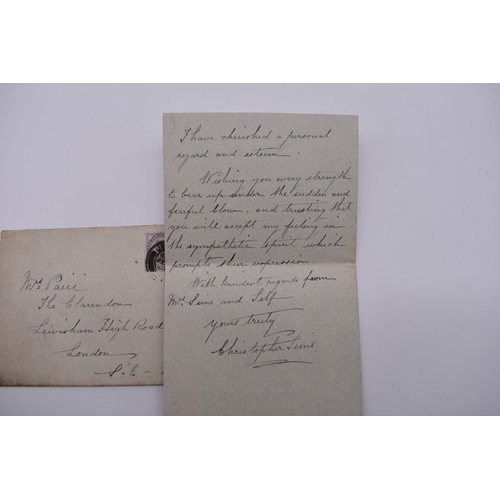 I have cherished a personal
regard and esteem.
Wishing you every strength
to bear up under the sudden and
fearful blow, and trusting that
you will accept my feeling in
the sympathetic spirit which
prompts their expression
With kindest regards from
Mrs Sims and Self
Yours truly
Christopher Sims
Mrs Paice
The Clarendon
Lewisham High Road
London
S.E.